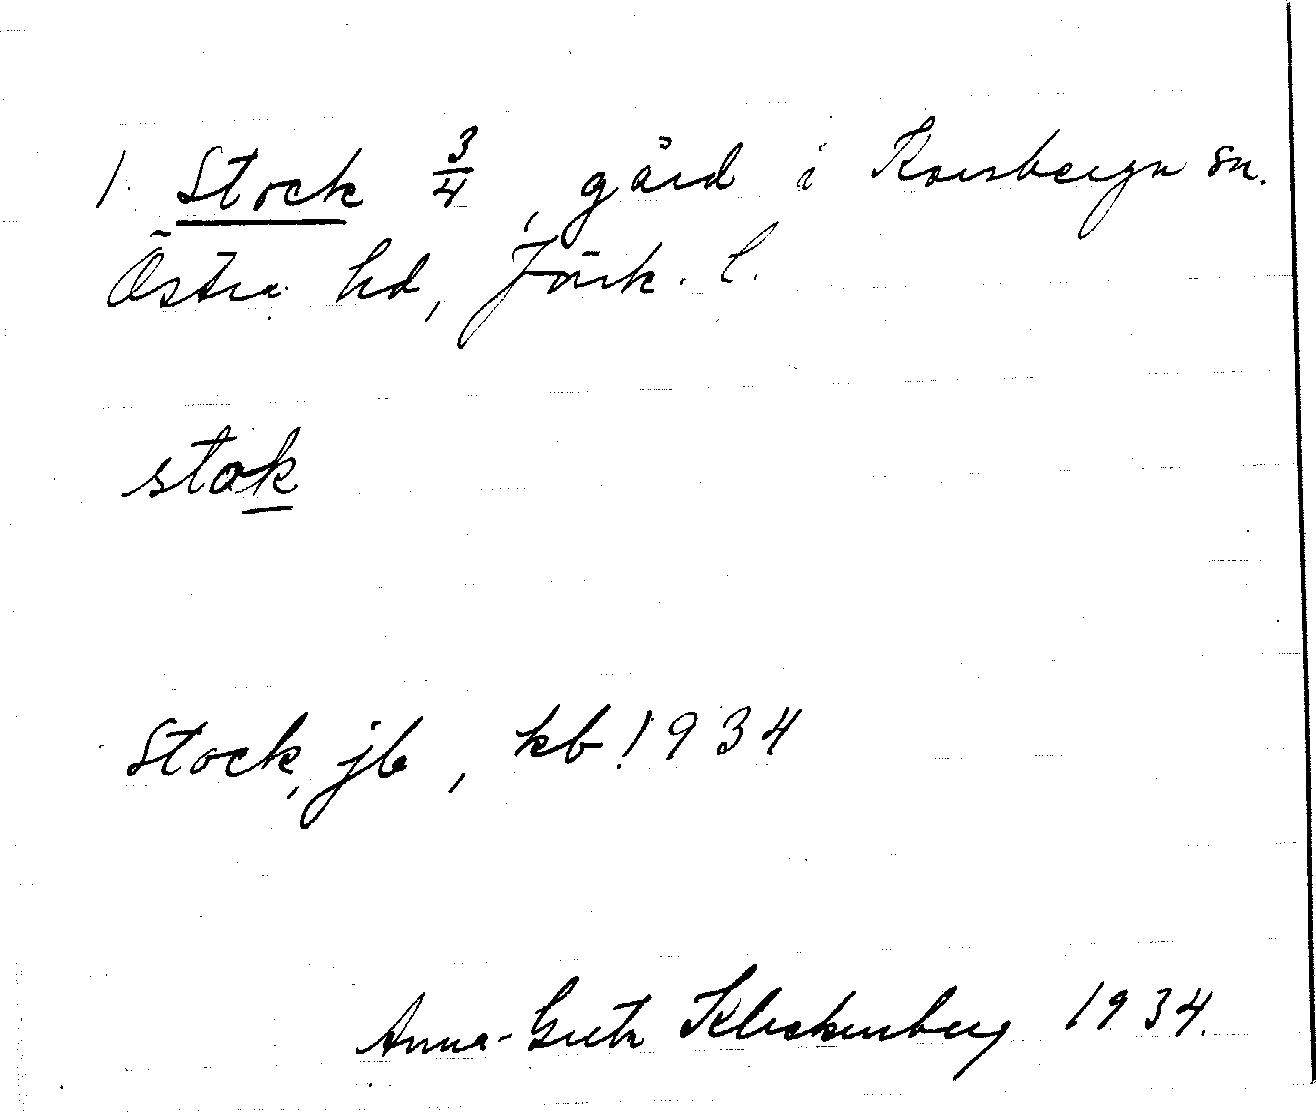 1. Stock 3/4, gård i Korsberga sn.
Östra hd, Jönk. l.
stok
Stock, jb, kb 1934
Anna-Greta Klickenberg 1934.